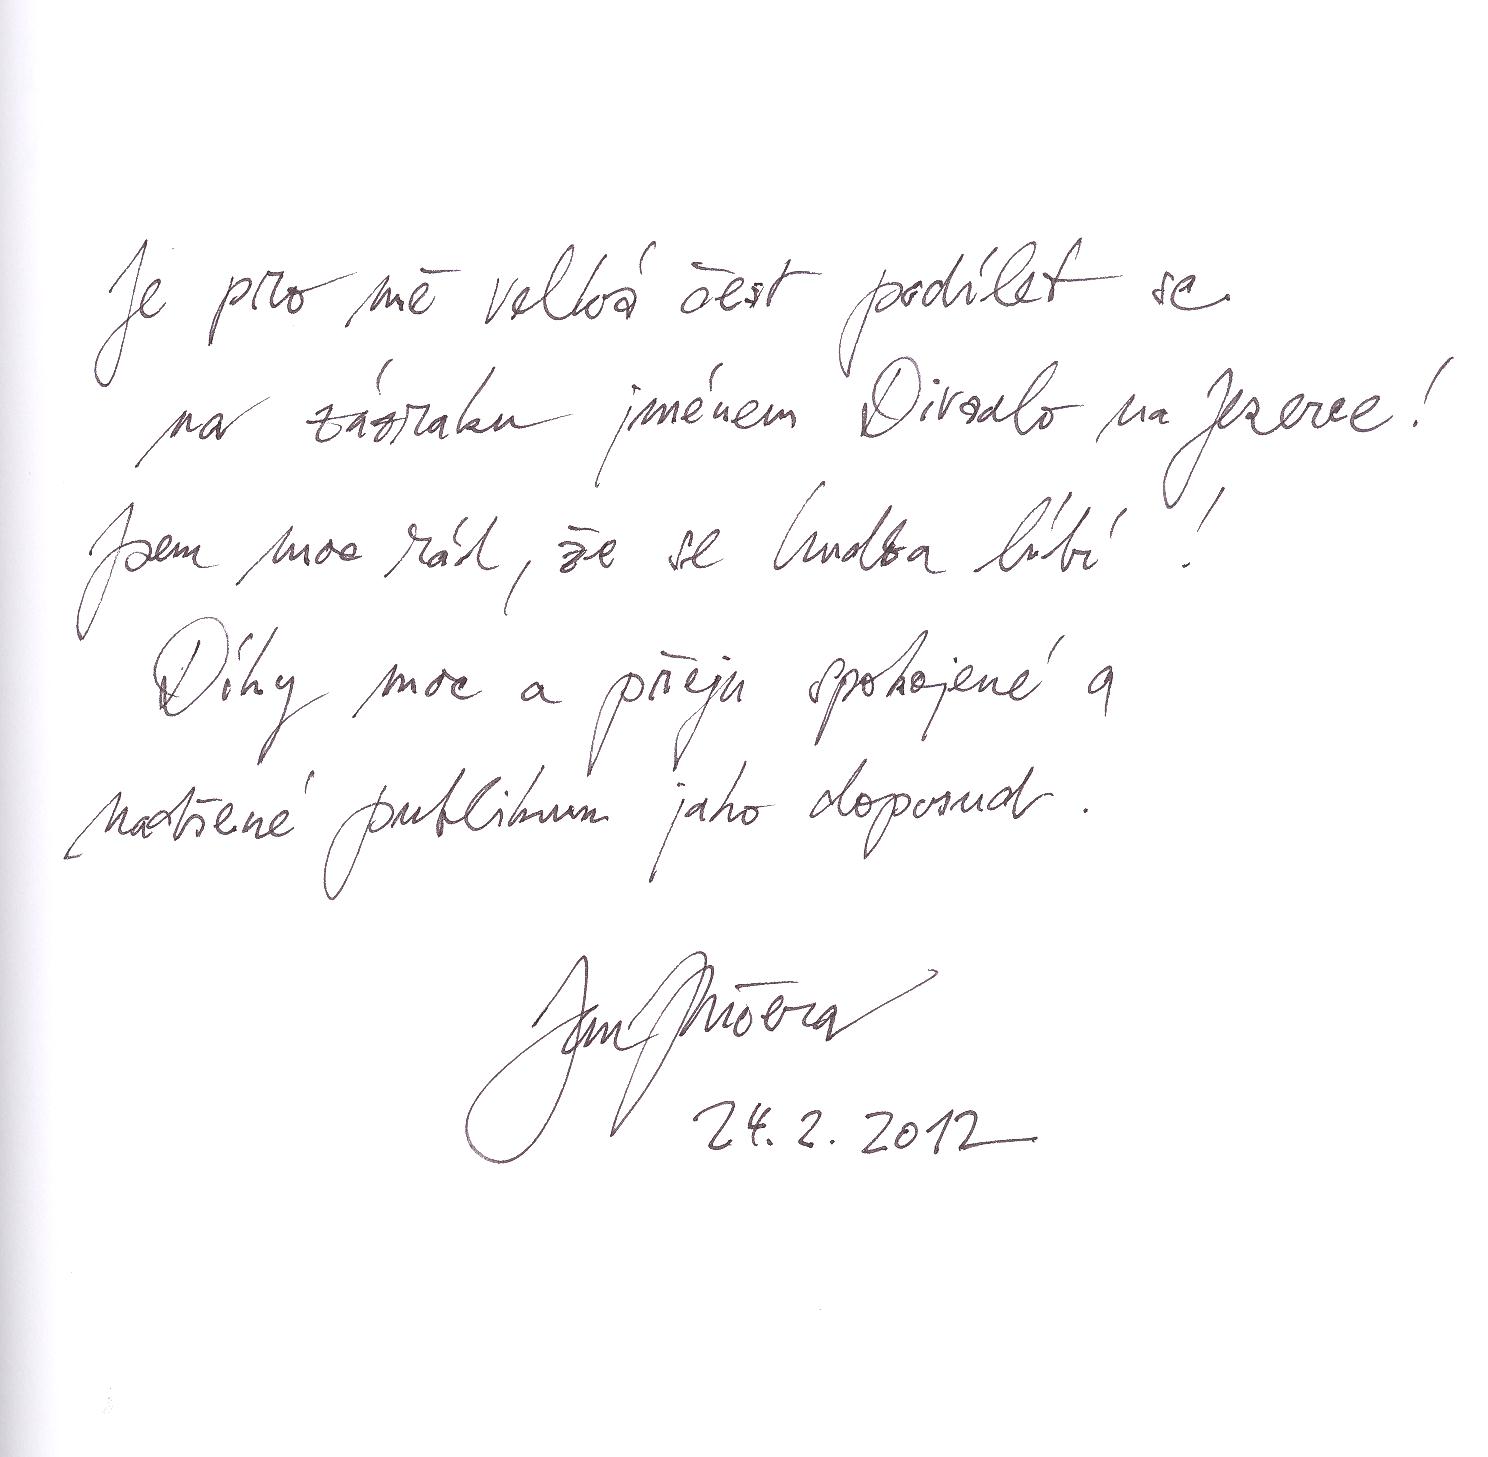 Je pro mě velká čest podílet se
na zázraku jménem Divadlo na Jezerce!
Jsem moc rád, že se hudba líbí!
Díky moc a přeju spokojené a
nadšené publikum jako doposud.
Jan
24. 2. 2012